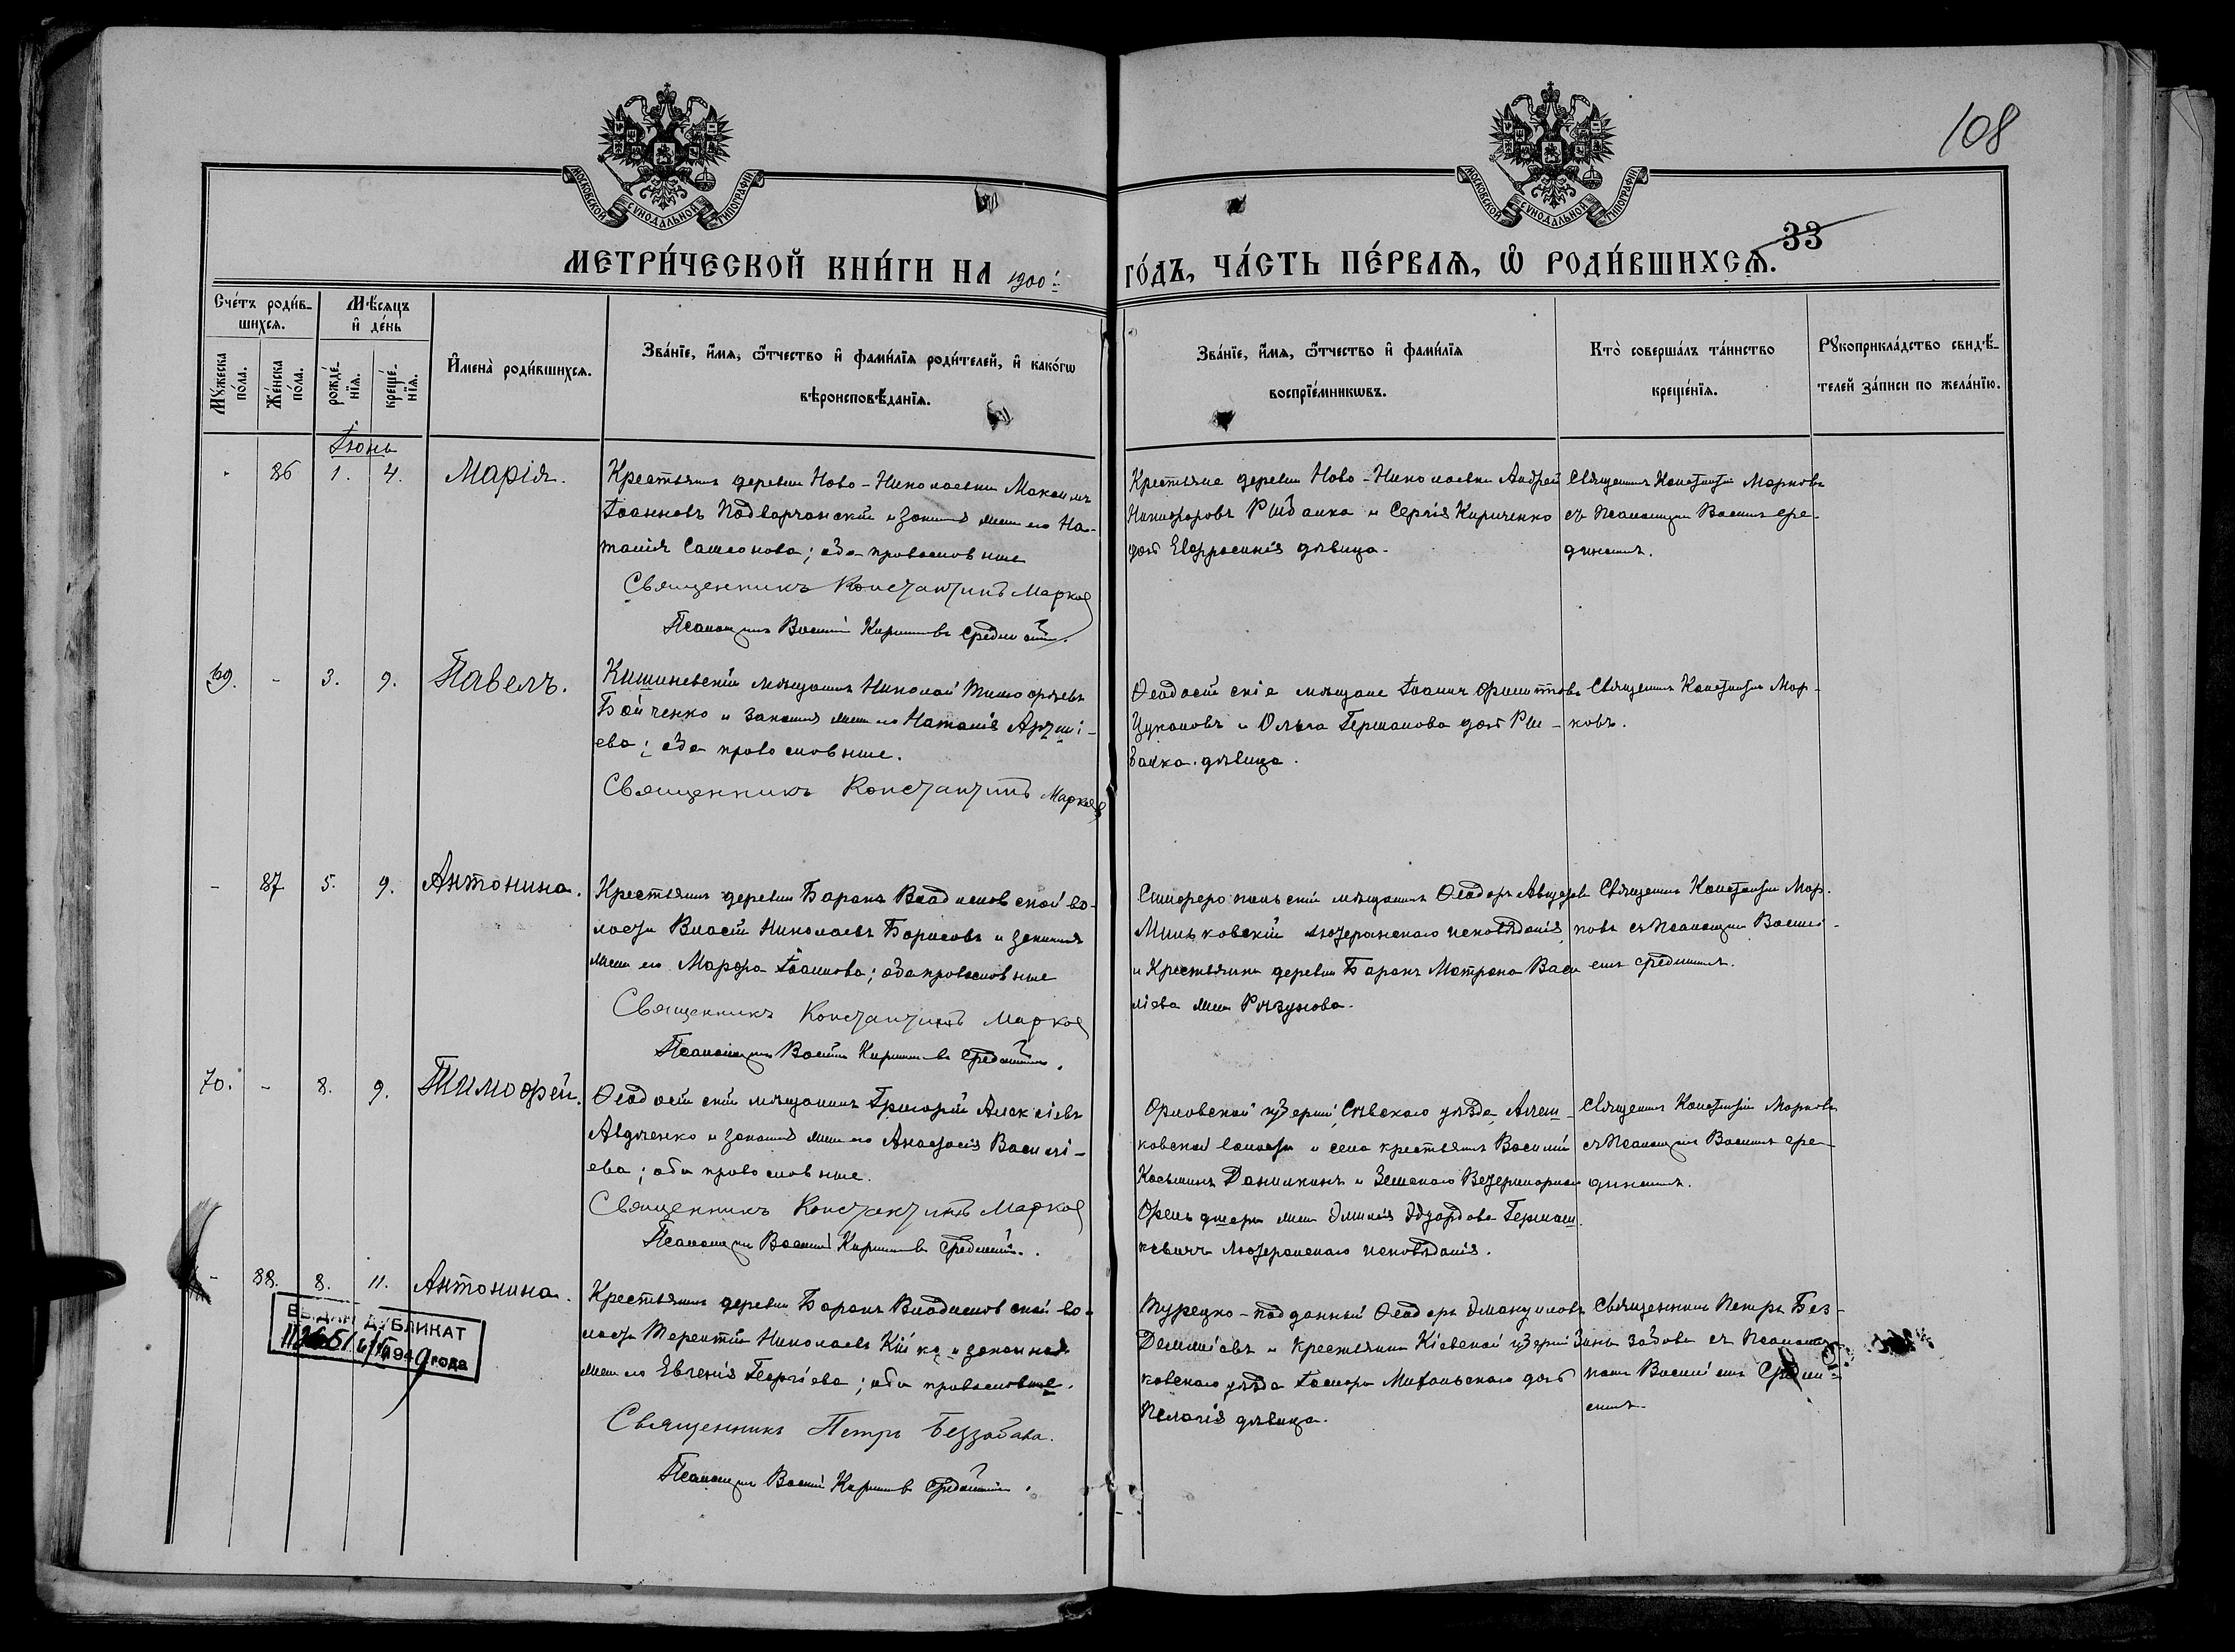 108
МОСКОВСКОЙ СѴНОДАЛЬНОЙ ТИПОГРАФІИ
МОСКОВСКОЙ СѴНОДАЛЬНОЙ ТИПОГРАФІИ
33
МЕТРИ́ЧЕСКОЙ КНИ́ГИ НА 1900й
ГО́ДЪ, ЧА́СТЬ ПЕ́РВАѦ, Ѡ҆ РОДИ́ВШИХСѦ.
Сче́тъ роди́в-
шихсѧ.
Мꙋ́жеска
по́ла.
Же́нска
по́ла.
Мѣ́сѧцъ
и҆ де́нь
рожде́-
нїѧ.
креще́-
нїѧ.
И҆мена̀ роди́вшихсѧ.
Зва́нїе, и҆́мѧ, ѻ҆́тчество и҆ фами́лїѧ роди́телей, и҆ како́гѡ
вѣроисповѣ́данїѧ.
Зва́нїе, и҆́мѧ, ѻ҆́тчество и҆ фами́лїѧ
воспрїе́мникѡвъ.
Кто̀ соверша́лъ та́инство
креще́нїѧ.
Рꙋкоприкла́дство свидѣ́-
телей за́писи по жела́нїю.
Іюнь
86 1. 4. Марія.
Крестьянинъ деревни Ново-Николаевки Максимъ
Іоанновъ Подворчанскій и законная жена его На-
талія Самсонова; оба православные
Священникъ Константинъ Марковъ
Псаломщикъ Василій Кирилловъ Срединскій.
Крестьяне деревни Ново-Николаевки Андрей
Никифоровъ Рыбалка и Сергія Кириченко
дочь Евфросинія дѣвица.
Священникъ Константинъ Марковъ
съ Псаломщик. Васил. Сре-
динскимъ.
69. - 3. 9. Павелъ.
Кишиневскій мѣщанинъ Николай Тимофѣевъ
Бойченко и законная жена его Наталія Артемі-
ева; оба православные.
Священникъ Константинъ Марковъ
Ѳеодосійскіе мѣщане Іоаннъ Филипповъ
Цукановъ и Ольга Германова дочь Ры-
балка дѣвица.
Священникъ Константинъ Мар-
ковъ.
- 87 5. 9. Антонина.
Крестьянинъ деревни Баракъ Владиславской во-
лости Власій Николаевъ Борисовъ и законная
жена его Марфа Іоаннова; оба православные
Священникъ Константинъ Марковъ
Псаломщикъ Василій Кирилловъ Срединскій.
Симферопольскій мѣщанинъ Ѳеодоръ
Миньковскій лютеранскаго исповѣданія
и Крестьянка деревни Баракъ Матрона Васи
ліева жена Рязунова.
Священникъ Константинъ Мар-
ковъ съ Псаломщик. Василі-
емъ Срединскимъ.
70. - 8. 9. Тимофей.
Ѳеодосійскій мѣщанинъ Григорій Алексіевъ
Авдѣенко и законная жена его Анастасія Василі-
ева; оба православные.
Священникъ Константинъ Марковъ
Псаломщикъ Василій Кирилловъ Срединскій.
Орловской губерніи, Сѣвскаго уѣзда,
волости и села крестьянинъ Василій
Косьминъ Данилкинъ и Земскаго Ветеринарнаго
Фельдшера жена Эмилія Эдуардова
лютеранскаго исповѣданія.
Священникъ Константинъ Марковъ
съ Псаломщик. Василіемъ Сре-
динскимъ.
- 88. 8. 11. Антонина.
Крестьянинъ деревни Баракъ Владиславской во-
лости Терентій Николаевъ Кійко и законная
жена его Евгенія Георгіева; оба православные.
Священникъ Петръ Беззабава.
Псаломщикъ Василій Кирилловъ Срединскій.
Турецко-подданный Ѳеодоръ Эмануиловъ
и крестьянина Кіевской губерніи Звени
ковскаго уѣзда дочь
Пелагія дѣвица.
Священникъ Петръ Без-
забава съ Псаломщи-
комъ Василіемъ Средин-
скимъ.
ВЫДАН ДУБЛИКАТ
1949 года